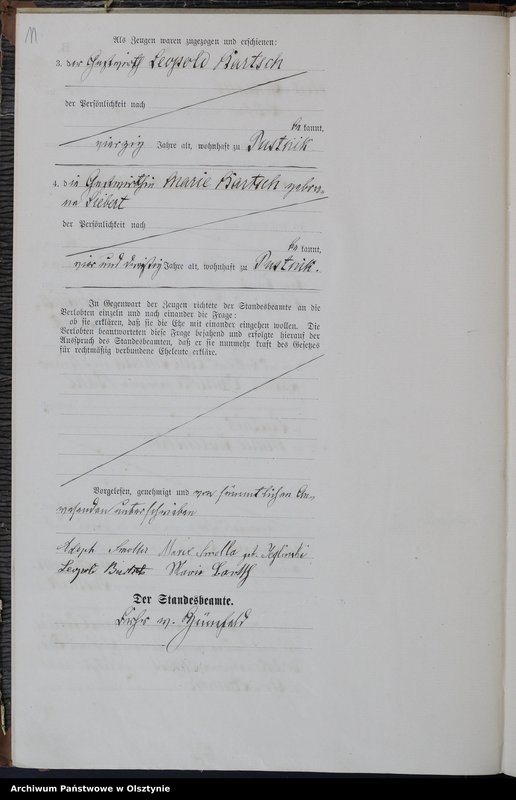 11
Als Zeugen waren zugezogen und erschienen:
3. der Gastwirth Leopold Bartsch
der Persönlichkeit nach
be kannt,
vierzig Jahre alt, wohnhaft zu Pustnik
4. die Gastwirthin Marie Bartsch gebore-
ne Liebert
der Persönlichkeit nach
be kannt,
vier und dreißig Jahre alt, wohnhaft zu Pustnik.
In Gegenwart der Zeugen richtete der Standesbeamte an die
Verlobten einzeln und nach einander die Frage:
ob sie erklären, daß sie die Ehe mit einander eingehen wollen. Die
Verlobten beantworteten diese Frage bejahend und erfolgte hierauf der
Ausspruch des Standesbeamten, daß er sie nunmehr kraft des Gesetzes
für rechtmäßig verbundene Eheleute erkläre.
Vorgelesen, genehmigt und von sämmtlichen An-
wesenden unterschrieben
Marie geb.
Leopold Bartsch Marie Bartsch
Der Standesbeamte.
Archiwum Państwowe w Olsztynie